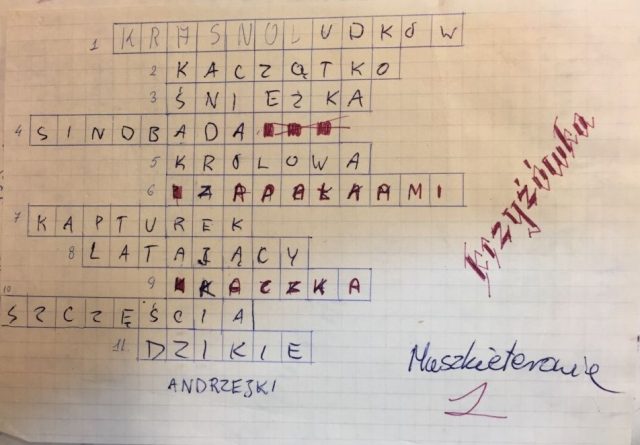 1 KRASNOLUDKÓW
2 KACZĄTKO
3 ŚNIEŻKA
4 SINOBADA
5 KRÓLOWA
6 ZAPAŁKAMI
7 KAPTUREK
8 LATAJĄCY
9 KACZKA
10 SZCZĘŚCIA
11. DZIKIE
ANDRZEJKI
Krzyżówka
Muszkieterowie
1